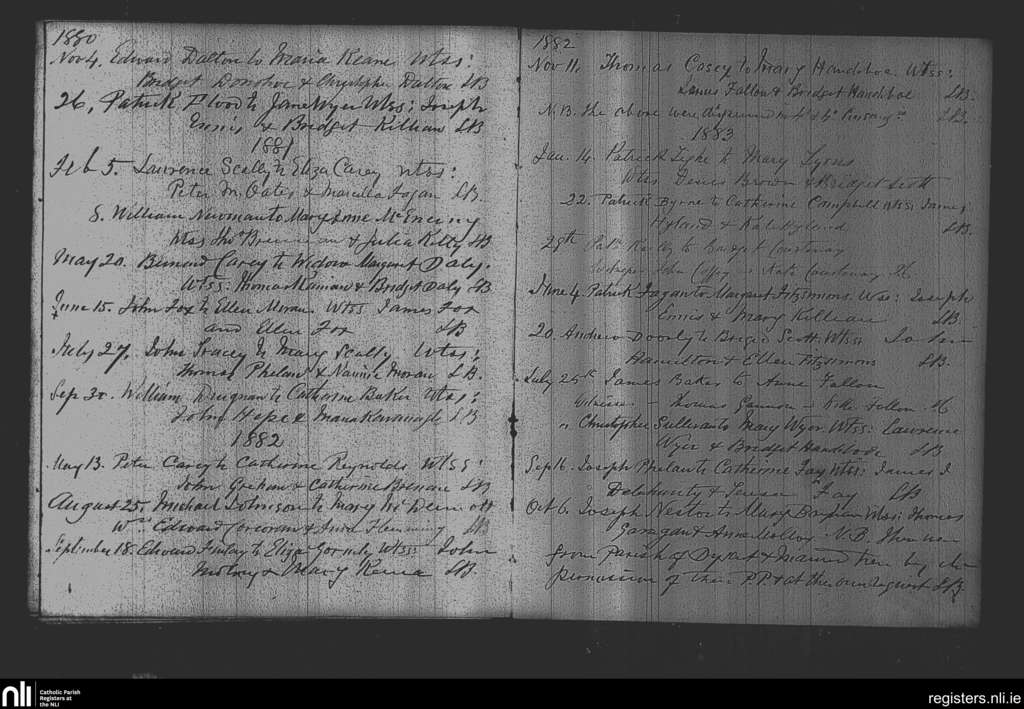 1880
Nov 4. Edward Dalton to Maria Keane Wtss:
Bridget Donohoe & Christopher Dalton LB
26, Patrick Flood to Jane Wyer Wtss: Joseph
Ennis & Bridget Killian LB
1881
Feb 5. Laurence Scally to Eliza Carey Wtss:
Peter & Marcella Fagan LB.
8. William to Mary Anne
Wtss Thos Brennan & Julia Kelly LB
May 20. Bernard Carey to Widow Margaret Daly.
Wtss: Thomas & Bridget Daly LB
June 15. John Fox to Ellen Moran Wtss James Fox
and Ellen Fox LB
July 27, John Tracey to Mary Scally Wtss:
Thomas Phelan & Moran LB.
Sep 30. William Duignan to Catherine Baker Wtss:
John Hope & Maria Kavanagh LB
1882
May 13. Peter Carey to Catherine Reynolds Wtss:
John Graham & Catherine LB
August 25. Michael Johnson to Mary McDermott
Edward Corcoran & Anne Flemming LB
September 18. Edward Finlay to Eliza Gormly Wtss: John
& Mary LB.
1882
Nov 11, Thomas Casey to Mary Handiboe Wtss:
James Fallon & Bridget Handiboe LB.
N.B. The above were dispensed in 4th & 4th LB.
1883
Jan. 14. Patrick Tighe to Mary Lyons
Wtss Denis Brown & Bridget Scott
22. Patrick Byrne to Catherine Campbell Wtss: James
Hyland & Kate Hyland LB.
29th Patk Kelly to Bridget Courtenay
John & Kate Courtenay
June 4. Patrick Fagan to Margaret Fitzsimons. Wtss: Joseph
Ennis & Mary Killian LB.
20. Andrew Dooly to Scott Wtss John
Hamilton & Ellen Fitzsimons LB.
July 25th James Baker to Anne Fallon
Witnesses - Thomas Gannon - Kate Fallon.
" Christopher Sullivan to Mary Wyer Wtss: Laurence
Wyer & Bridget Handiboe LB
Sep 16. Joseph Phelan to Catherine Fay Wtss: James J
Delahunty & Teresa Fay LB
Oct 6. Joseph Nestor to Mary Wtss: Thomas
& Anne N.B. These were
from Parish of & married here by the
permission of their P.P. & at their own request LB.
nli
Catholic Parish
Registers at
the NLI
registers.nli.ie